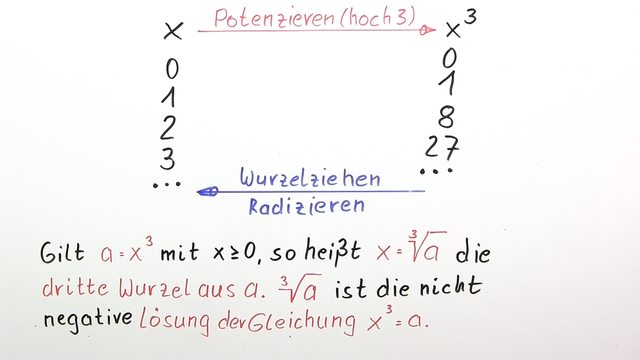 x Potenzieren (hoch 3) x³
0 0
1 1
2 8
3 27
... ...
Wurzelziehen
Radizieren
Gilt a = x³ mit x ≥ 0, so heißt x = ³√a die
dritte Wurzel aus a. ³√a ist die nicht
negative Lösung der Gleichung x³ = a.